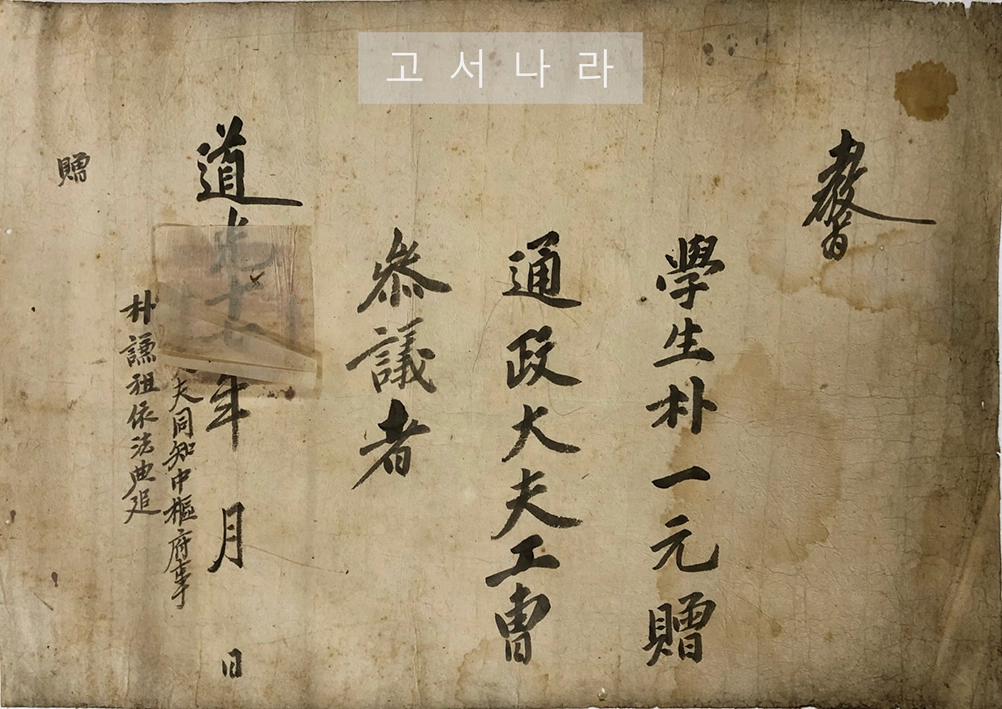 고서나라
敎旨
學生朴一元贈
通政大夫工曺
參議者
道光十年 月 日
夫同知中樞府事
朴謙祖依法典追
贈